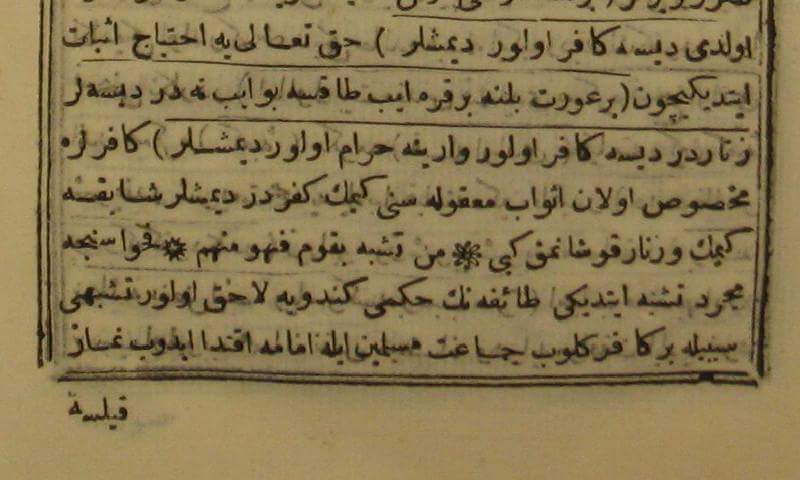 اولدى ديسه كافر اولور ديمشلر ) حق تعالى يه احتياج اثبات
ايتديكيچون ( بر عورت بلنه بر قره ايب طاقسه بو ايب نه در ديسه لر
زناردر ديسه كافر اولور وارينه حرام اولور ديمشلر ) كافرلره
مخصوص اولان اثواب مقوله سنى كيمك كفردر ديمشلر شابقه
كيمك و زنار قوشانمق كبى من تشبه بقوم فهو منهم فحواسنجه
مجرد تشبه ايتديكى طائفه نك حكمى كندويه لاحق اولور تشبهى
سببيله بر كافر كلوب جماعت مسلمين ايله امامه اقتدا ايدوب نماز
قيلسه